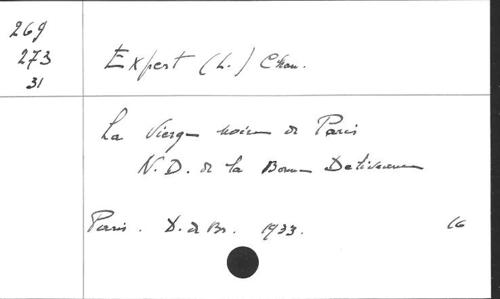 269
273
31
Expert (L.) Chan.
La Vierge noire de Paris
N. D. de la Bonne Délivrance
Paris. D. de Br. 1933. 16